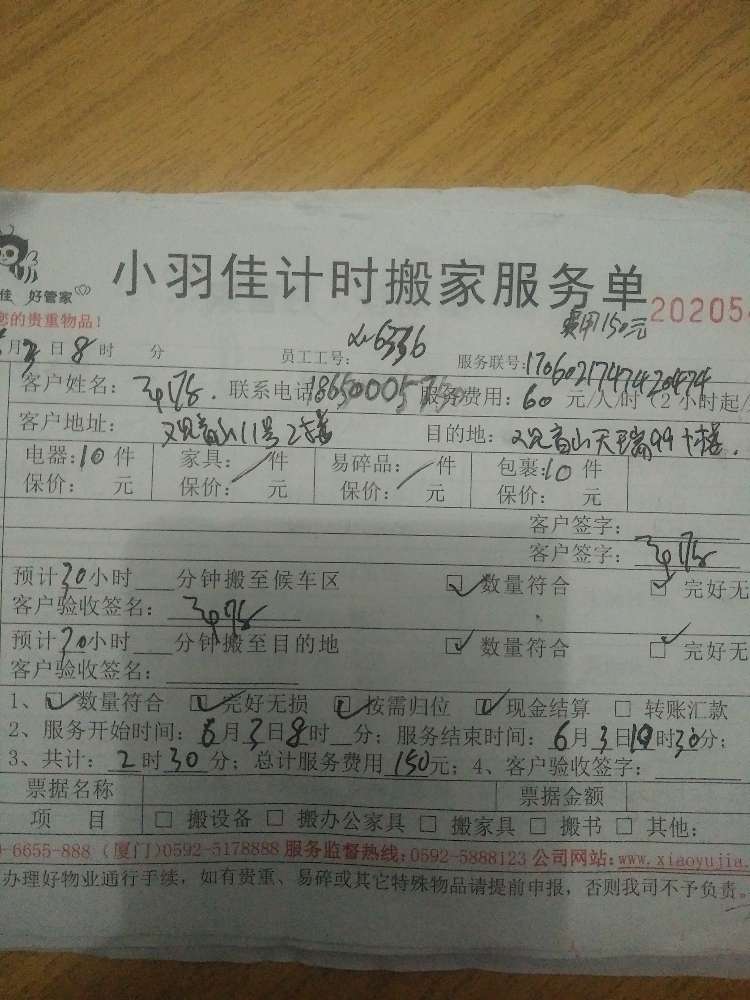 佳 好管家
小羽佳计时搬家服务单
202054
您的贵重物品!
费用150元
月3日8时 分 员工工号: 6336 服务联号:1706021747420474
客户姓名: 联系电话 服务费用:60元/人/时(2小时起/
客户地址: 观音山11号2楼 目的地:观音山天瑞99 楼.
电器:10件 家具:/件 易碎品:/件 包裹:10件
保价: 元 保价: 元 保价: 元 保价: 元
客户签字:
客户签字:
预计30小时 分钟搬至候车区 ☑数量符合 ☑完好无
客户验收签名:
预计30小时 分钟搬至目的地 ☑数量符合 ☑完好无
客户验收签名:
1、☑数量符合 ☑完好无损 ☑按需归位 ☑现金结算 □转账汇款
2、服务开始时间:6月3日8时 分;服务结束时间:6月3日10时30分;
3、共计:2时30分;总计服务费用150元;4、客户验收签字:
票据名称 票据金额
项 目 □搬设备 □搬办公家具 □搬家具 □搬书 □其他:
-6655-888 (厦门)0592-5178888 服务监督热线:0592-5888123 公司网站:www.xiaoyujia.
办理好物业通行手续,如有贵重、易碎或其它特殊物品请提前申报,否则我司不予负责。